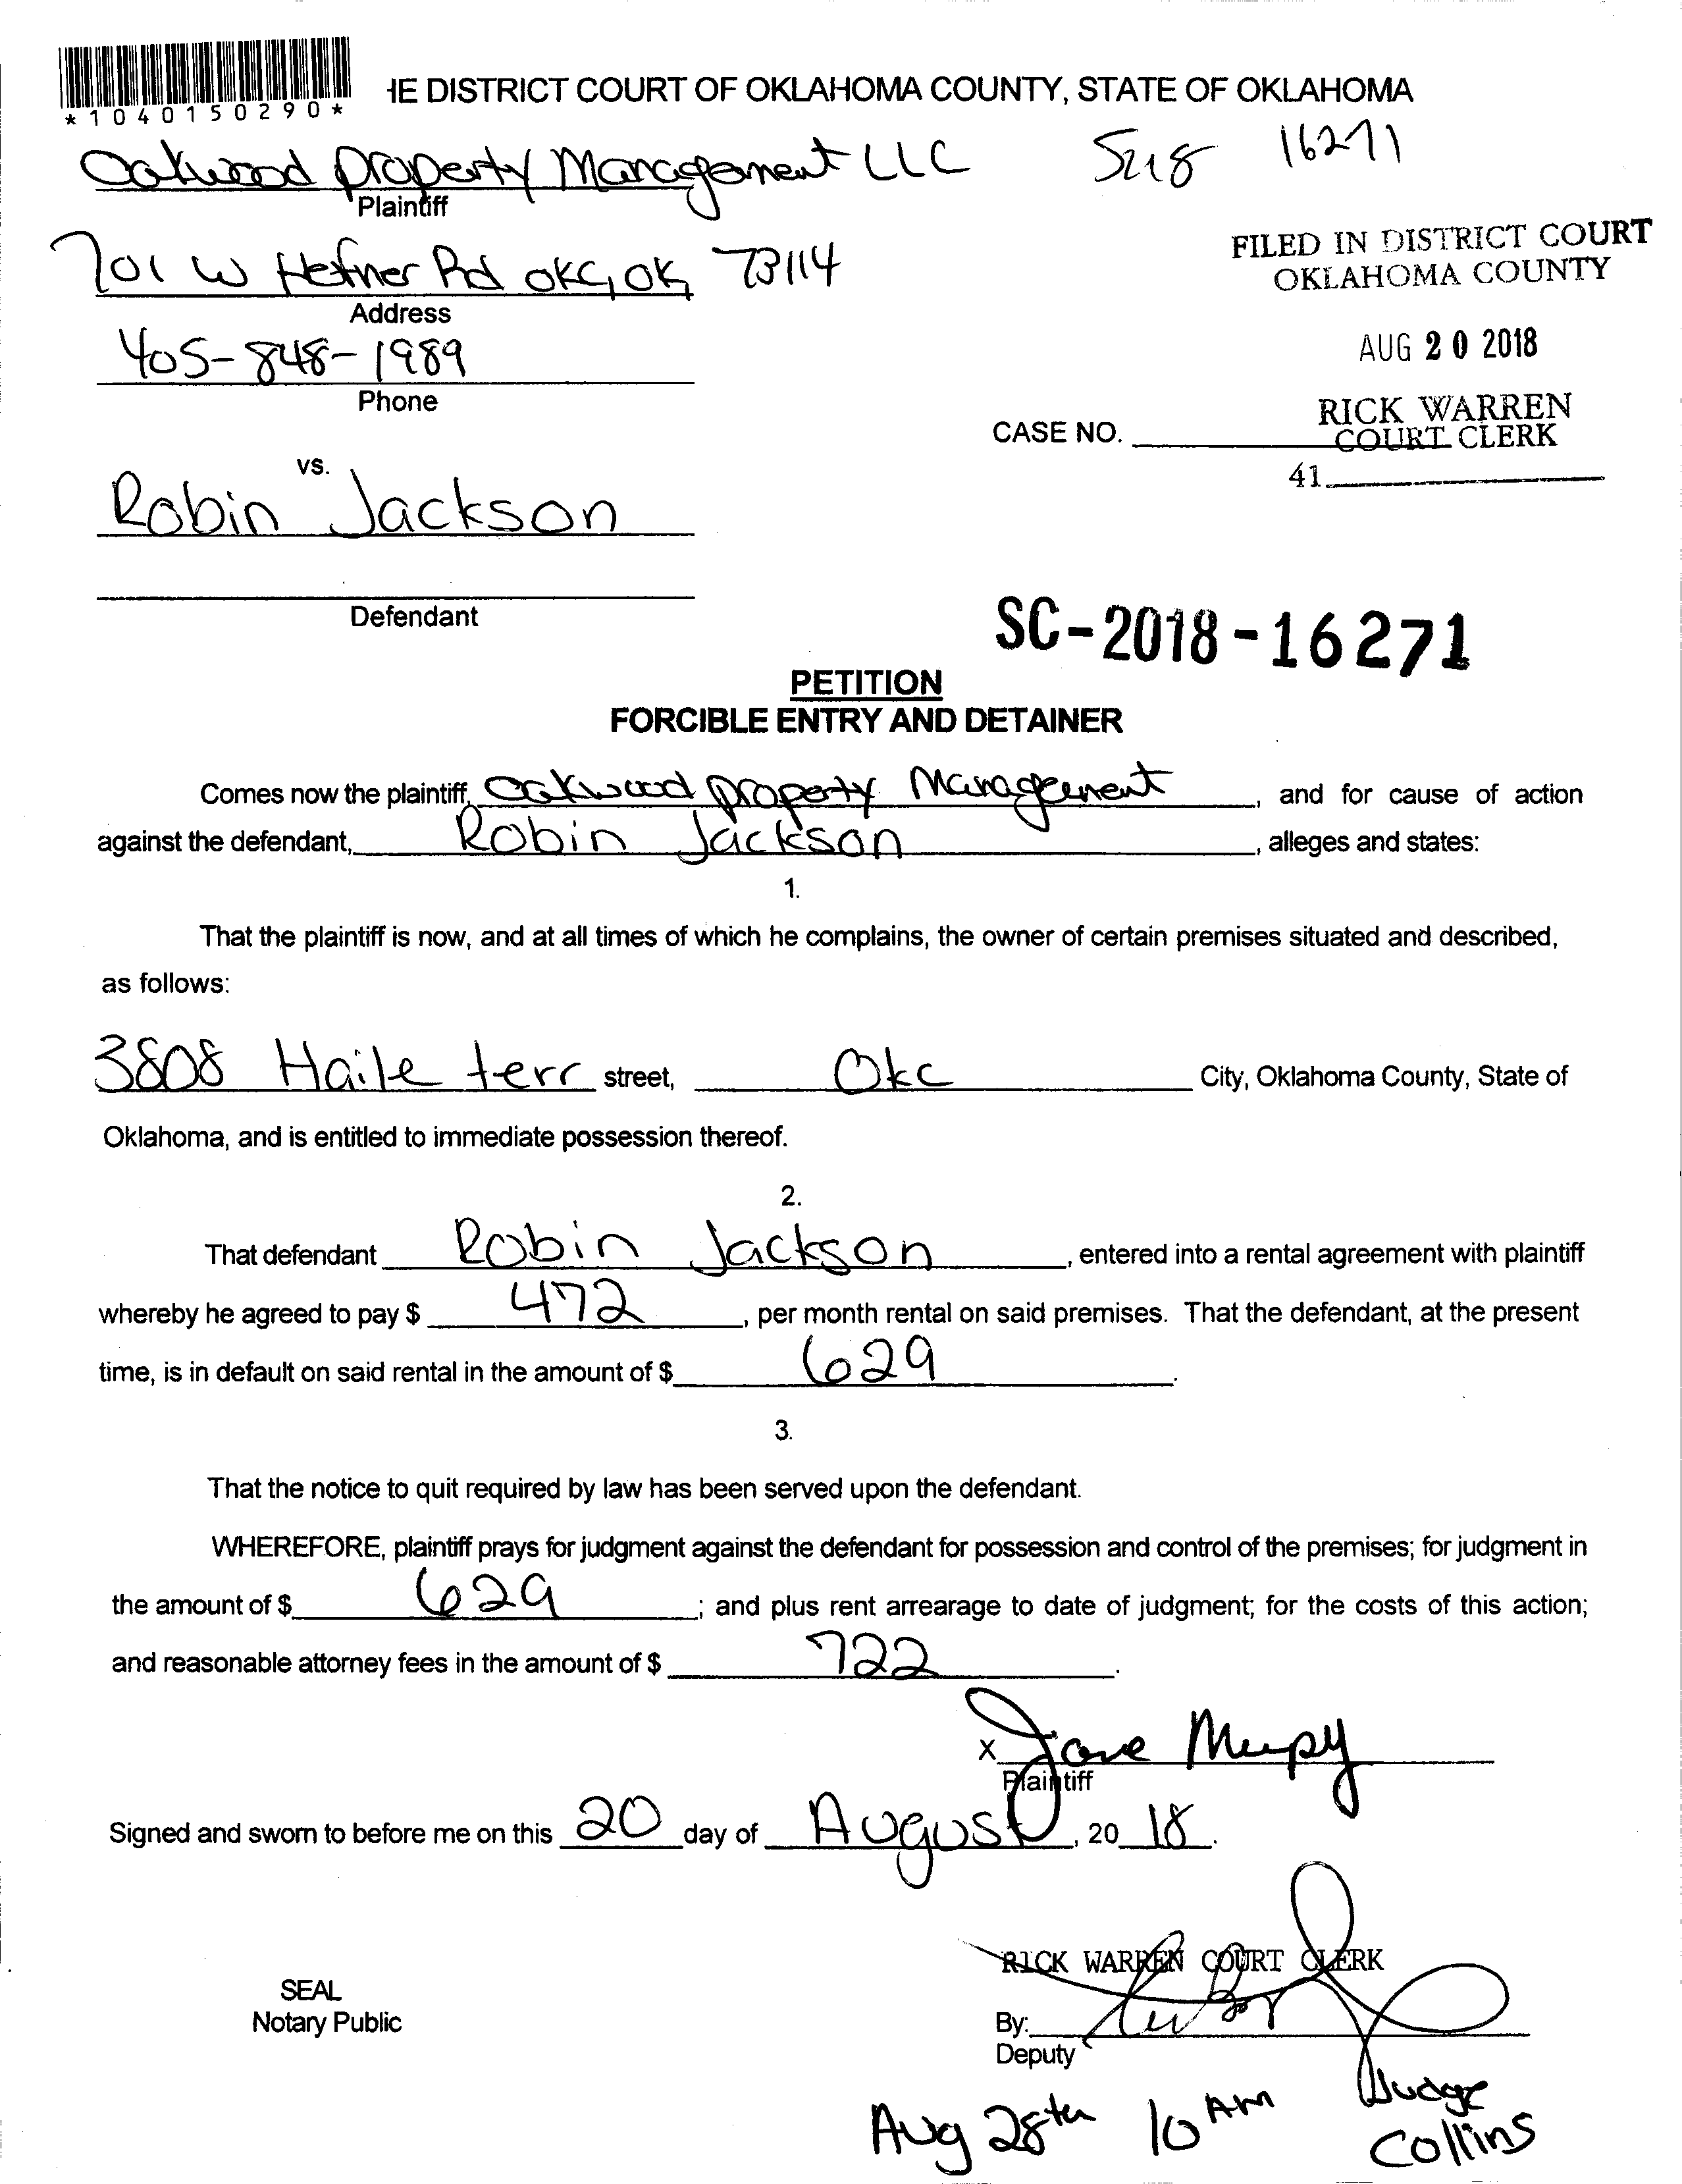 *1040150290*
HE DISTRICT COURT OF OKLAHOMA COUNTY, STATE OF OKLAHOMA
Oakwood Property Management LLC
16271
Plaintiff
701 W Hefner Rd OKC, OK, 73114
Address
405-848-1989
Phone
FILED IN DISTRICT COURT
OKLAHOMA COUNTY
AUG 20 2018
RICK WARREN
COURT CLERK
41
CASE NO.
vs.
Robin Jackson
Defendant
SC-2018-16271
PETITION
FORCIBLE ENTRY AND DETAINER
Comes now the plaintiff, Oakwood Property Management, and for cause of action
against the defendant, Robin Jackson, alleges and states:
1.
That the plaintiff is now, and at all times of which he complains, the owner of certain premises situated and described,
as follows:
3808 Haile terr street, Okc City, Oklahoma County, State of
Oklahoma, and is entitled to immediate possession thereof.
2.
That defendant Robin Jackson, entered into a rental agreement with plaintiff
whereby he agreed to pay $ 472, per month rental on said premises. That the defendant, at the present
time, is in default on said rental in the amount of $ 629.
3.
That the notice to quit required by law has been served upon the defendant.
WHEREFORE, plaintiff prays for judgment against the defendant for possession and control of the premises; for judgment in
the amount of $ 629; and plus rent arrearage to date of judgment; for the costs of this action;
and reasonable attorney fees in the amount of $ 722.
x
Plaintiff
Signed and sworn to before me on this 20 day of August, 2018.
RICK WARREN COURT CLERK
SEAL
Notary Public
By:
Deputy
Aug 28th 10 AM Judge
Collins